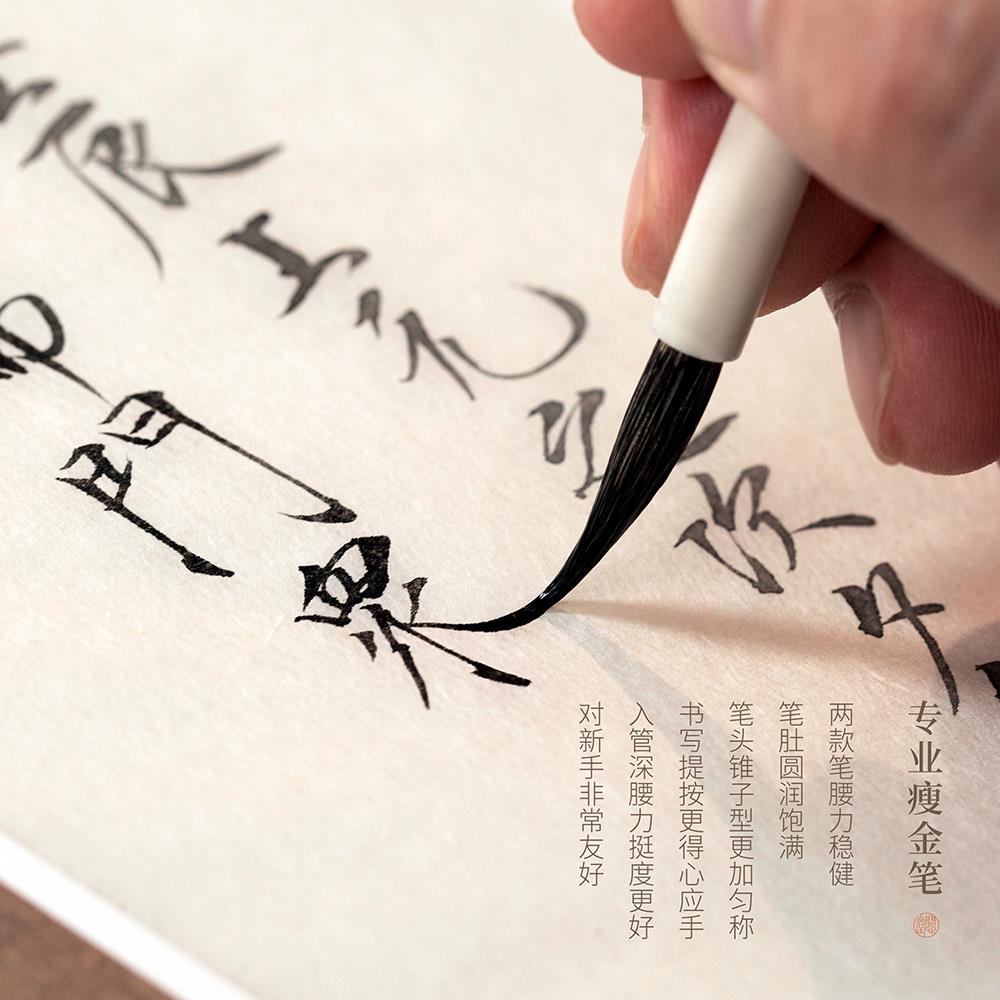 辰上元之次夕
門眾
专业瘦金笔
两款笔腰力稳健
笔肚圆润饱满
笔头锥子型更加匀称
书写提按更得心应手
入管深腰力挺度更好
对新手非常友好